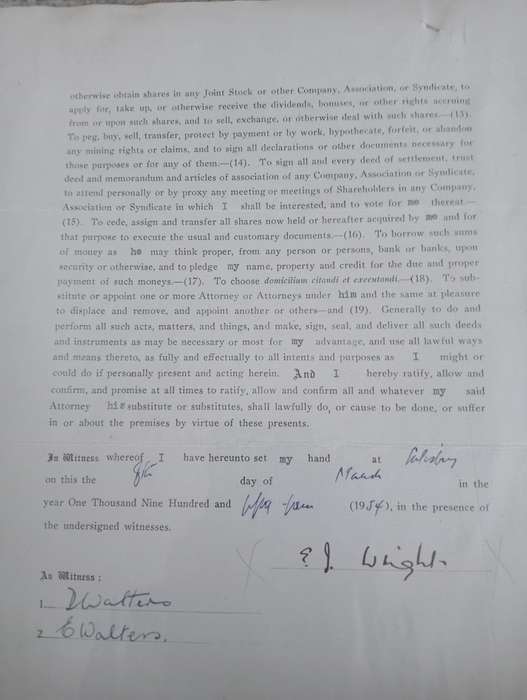 otherwise obtain shares in any Joint Stock or other Company, Association, or Syndicate, to
apply for, take up, or otherwise receive the dividends, bonuses, or other rights accruing
from or upon such shares, and to sell, exchange, or otherwise deal with such shares.—(13).
To peg, buy, sell, transfer, protect by payment or by work, hypothecate, forfeit, or abandon
any mining rights or claims, and to sign all declarations or other documents necessary for
those purposes or for any of them.—(14). To sign all and every deed of settlement, trust
deed and memorandum and articles of association of any Company, Association or Syndicate,
to attend personally or by proxy any meeting or meetings of Shareholders in any Company,
Association or Syndicate in which I shall be interested, and to vote for me thereat.—
(15). To cede, assign and transfer all shares now held or hereafter acquired by me and for
that purpose to execute the usual and customary documents.—(16). To borrow such sums
of money as he may think proper, from any person or persons, bank or banks, upon
security or otherwise, and to pledge my name, property and credit for the due and proper
payment of such moneys.—(17). To choose domicilium citandi et executandi.—(18). To sub-
stitute or appoint one or more Attorney or Attorneys under him and the same at pleasure
to displace and remove, and appoint another or others—and (19). Generally to do and
perform all such acts, matters, and things, and make, sign, seal, and deliver all such deeds
and instruments as may be necessary or most for my advantage, and use all lawful ways
and means thereto, as fully and effectually to all intents and purposes as I might or
could do if personally present and acting herein. And I hereby ratify, allow and
confirm, and promise at all times to ratify, allow and confirm all and whatever my said
Attorney his substitute or substitutes, shall lawfully do, or cause to be done, or suffer
in or about the premises by virtue of these presents.
In Witness whereof I have hereunto set my hand at Salisbury
on this the 8th day of March in the
year One Thousand Nine Hundred and fifty four (1954), in the presence of
the undersigned witnesses.
E. J. Wright.
As Witness:
1. Walters
2. E Walters.